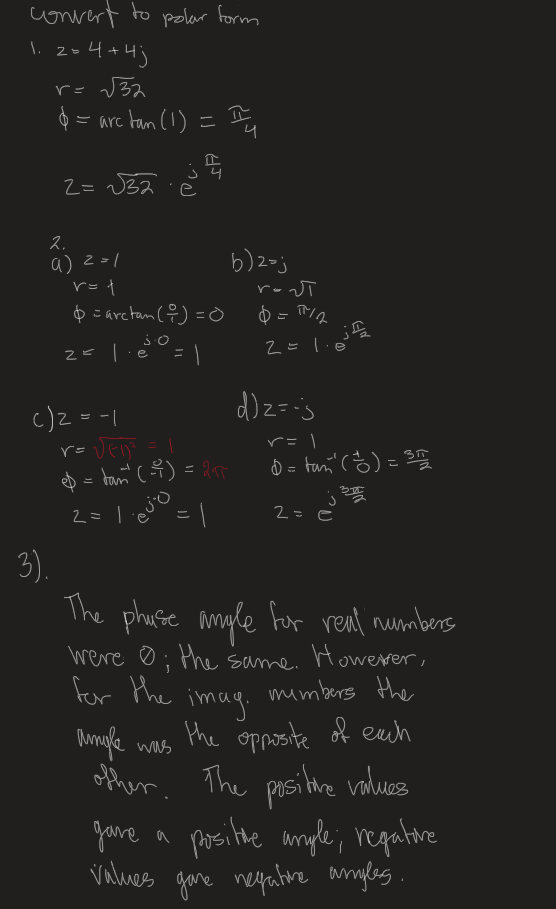 convert to polar form
1. z = 4 + 4j
r = √32
ϕ = arctan(1) = π/4
z = √32 · e^(j π/4)
2.
a) z = 1
r = 1
ϕ = arctan(0/1) = 0
z = 1 · e^(j·0) = 1
b) z = j
r = √1
ϕ = π/2
z = 1 · e^(j π/2)
c) z = -1
r = √(-1)² = 1
ϕ = tan⁻¹(0/-1) = 2π
z = 1 · e^(j·0) = 1
d) z = -j
r = 1
ϕ = tan⁻¹(1/0) = 3π/2
z = e^(j 3π/2)
3).
The phase angle for real numbers
were 0; the same. However,
for the imag. numbers the
angle was the opposite of each
other. The positive values
gave a positive angle; negative
values gave negative angles.